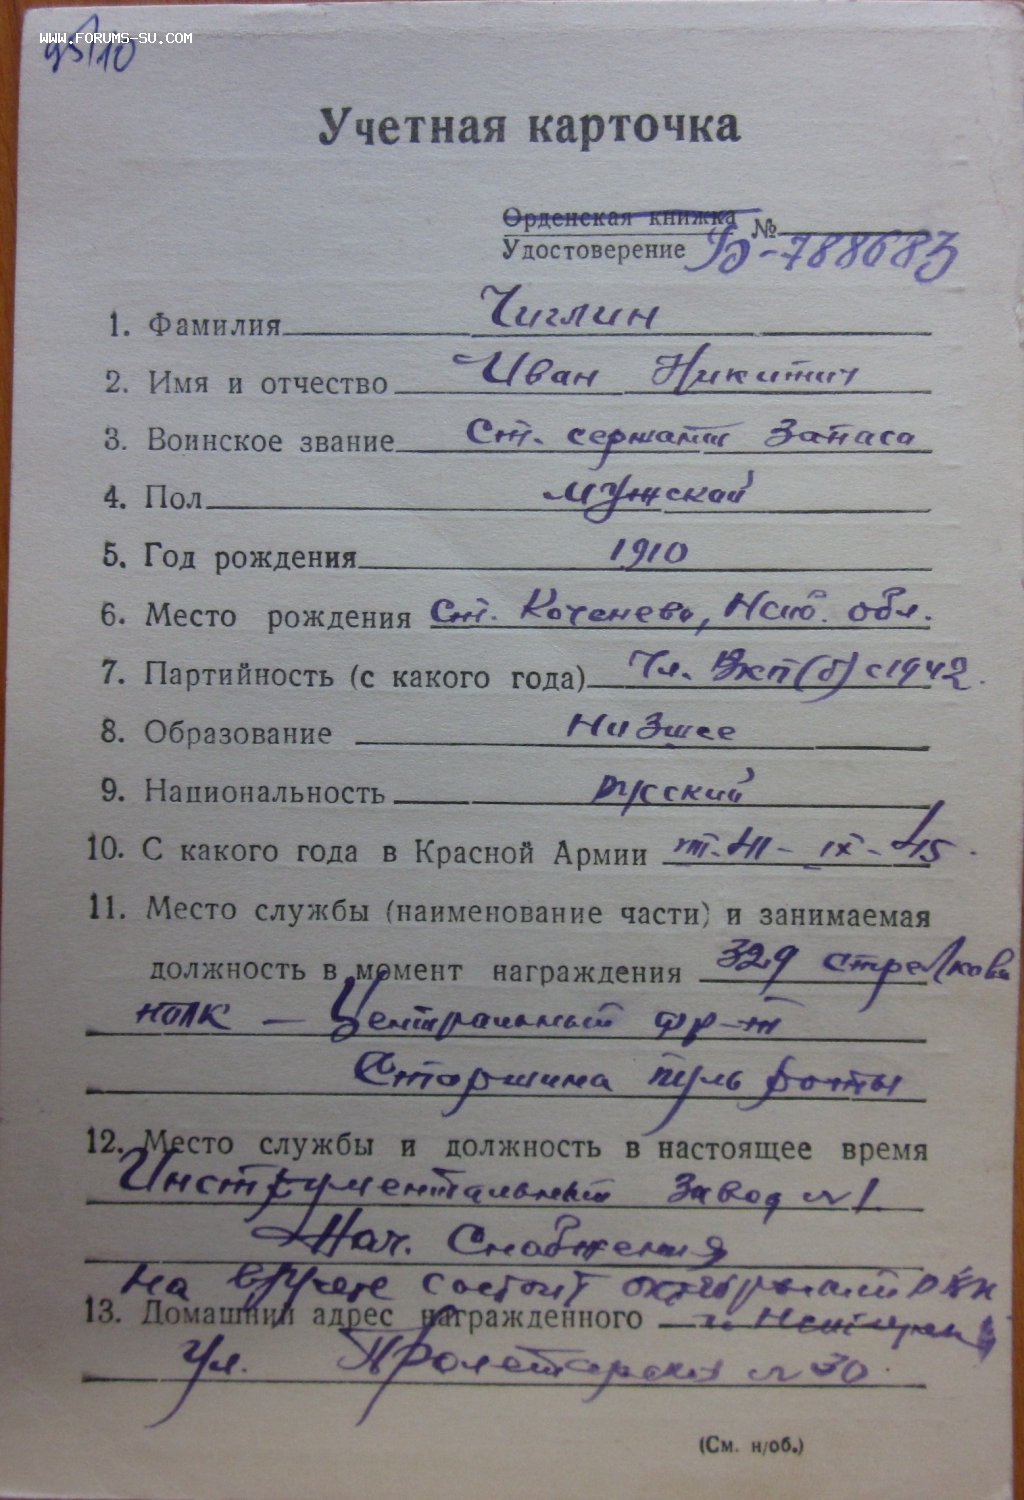 WWW.FORUMS-SU.COM
Учетная карточка
Орденская книжка
Удостоверение № Б-788683
1. Фамилия Чиглин
2. Имя и отчество Иван Никитич
3. Воинское звание Ст. сержант запаса
4. Пол мужской
5. Год рождения 1910
6. Место рождения Ст. Коченево, Нсиб. обл.
7. Партийность (с какого года) Чл. Вкп(б) с 1942.
8. Образование низшее
9. Национальность русский
10. С какого года в Красной Армии IX-45
11. Место службы (наименование части) и занимаемая
должность в момент награждения 329 стрелковы
полк - Центральный фр-т
Старшина пуль роты
12. Место службы и должность в настоящее время
Инструментальный завод №1.
Нач. Снабжения
на вручете состоит октябрьский РВК
13. Домашний адрес награжденного
ул. Пролетарская №30.
(См. н/об.)